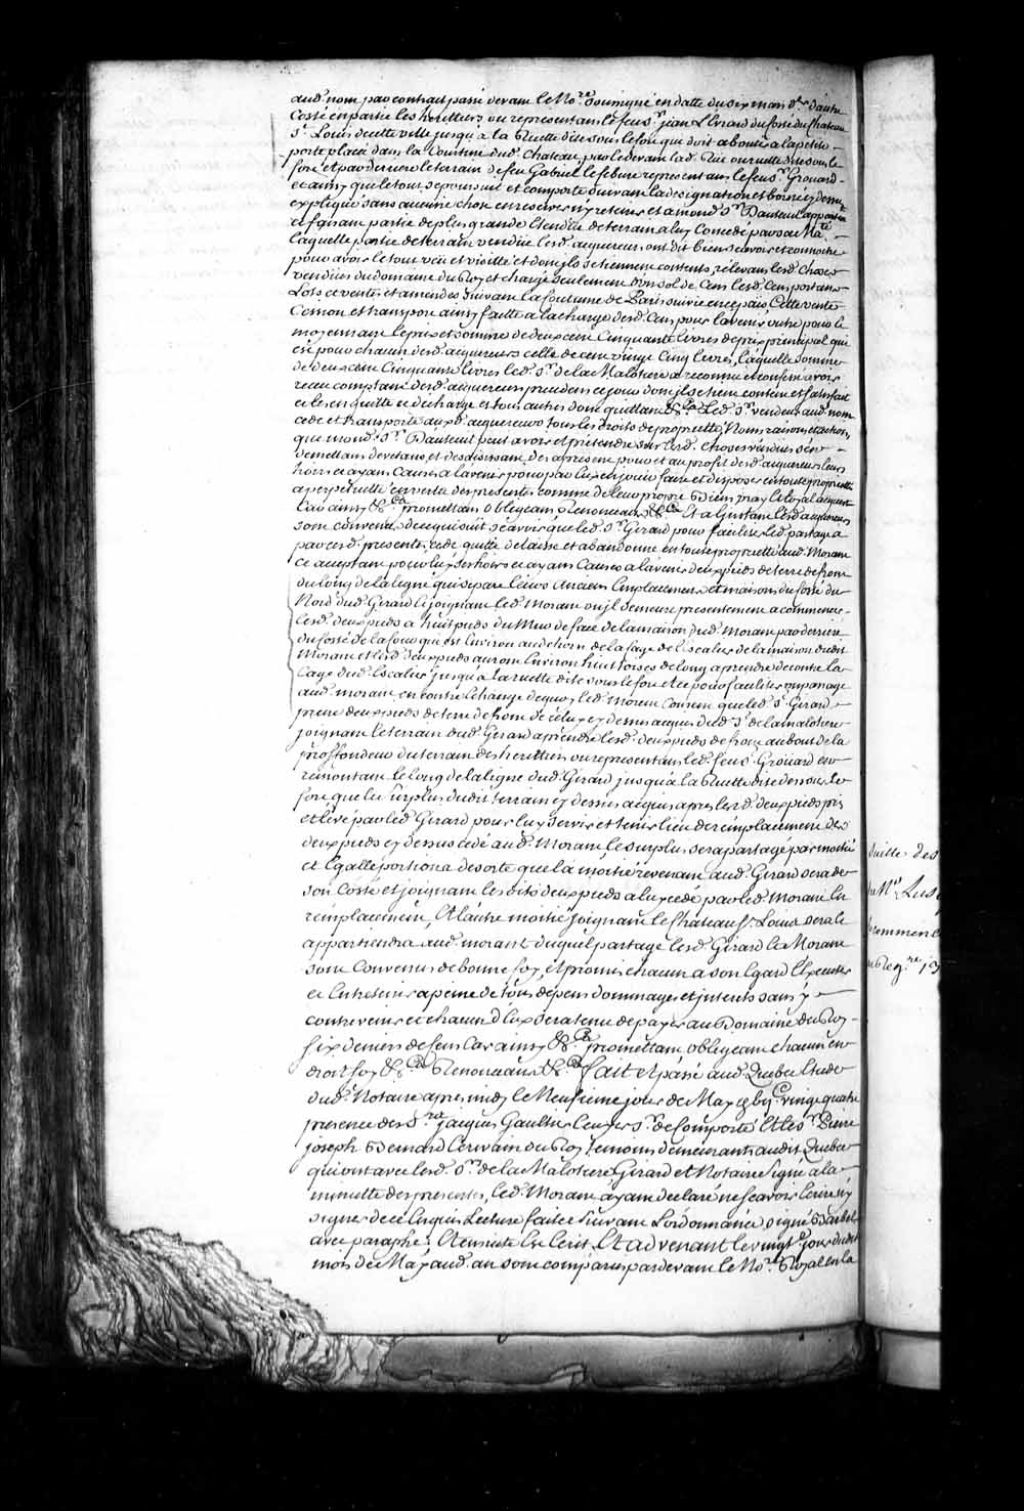 aud. nom par contract passé devant le No.re soussigné en datte du six mars d.er d'autre
Costé en partie les heritiers ou representans le feu s.r jean L'Evrard du fossé du Chateau
S.t Louis de cette ville jusqu'a la Ruette dite sous le fort qui doit aboutir a la petite
porte placée dans la Courtine dud. Chateau, par le devant lad. Rüe ou ruette dite sous le
fort et par derriere le terrain de feu Gabriel lefebvre representant le feu s.r Groüard
et ainsy que le tout se poursuit et comporte suivant la designation et bornes cy dessus
expliqué sans aucune chose en reserver ny retenir et a mond. S.r Dauteuil appartenant
et faisant partie de plus grande Etendüe de terrain a luy Concedé par sa Ma.té
Laquelle partie de terrain vendüe lesd. acquereurs ont dit bien sçavoir et connoitre
pour avoir le tout veu et visitté et dont ils se tiennent contents, relevant lesd. choses
vendües du domaine du Roy et chargé seulement d'un sol de Cens lesd. Cens portans
Lots et ventes et amendes suivant la Coutume de Paris suivie en ce païs Cette vente
Cession et transport ainsy faitte a la charge desd. Cens pour l'avenir outre pour le
moyennant le prix et somme de deux cens Cinquante livres de prix principal qui
est pour chacun desd. acquereurs celle de cent vingt Cinq livres, laquelle somme
de deux cens Cinquante livres led. S.r de la Malotiere a reconnu et confessé avoir
receu comptant desd. acquereurs dont il se tient content et satisfait
et les en quitte et decharge et tous autres dont quittance &c.a Led. S.r vendeur aud. nom
cede et transporte auxd. acquereurs tous les droits de proprieté, Noms, raisons, et actions,
que mond. S.r Dauteuil peut avoir et pretendre sur lesd. choses vendües s'en
demettant devetant, et dessaisissant, des a present pour et au profit desd. acquereurs leurs
hoirs et ayans Causes a l'avenir pour par eux en jouir faire et disposer en toute proprieté
a perpetuité en vertu des presentes comme de leur propre Bien, vray et loyal acquest
Car ainsy &c.a promettant obligeant Renonceant &c.a Et a l'instant lesd. acquereurs
sont convenus de ce qui suit sçavoir que led. S.r Girard pour faciliter led. partage a
par cesd. presentes cedé quitté delaissé et abandonné en toute proprieté aud. Morant
ce acceptant pour luy ses hoirs et ayans Causes a l'avenir deux pieds de terre de front
du long de la ligne qui separe leurs anciens Emplacemens et maisons du fossé du
Nord dud. Girard et joignant led. Morant ou il demeure presentement a commencer
lesd. deux pieds a huit pieds du Mur de face de la maison dud. Morant par derriere
du fossé de la four qui est Environ au dehors de la cage de l'escalier de la maison dudit
Morant et lesd. deux pieds auront Environ huit toises de long a prendre de contre la
Cage dud. Escalier jusqu'a la ruette dite sous le fort et ce pour faciliter un passage
aud. morant en contre Echange de quoy led. Morant Consent que led. S.r Girard
prenne deux pieds de terre de front de celuy cy dessus acquis dud. S.r de la malotiere
joignant le terrain dud. Girard a prendre lesd. deux pieds de front au bout de la
proffondeur du terrain des heritiers ou representans led. feu s.r Groüard en
remontant le long de la ligne dud. Girard jusqu'a la Ruette dite dessous le
fort que le surplus dudit terrain cy dessus acquis apres lesd. deux pieds pris
et levé par led. Girard pour luy servir et tenir lieu de remplacement des
deux pieds cy dessus cedé aud. Morant le surplus sera partagé par moitié
et Egalle portion a desorte que la moitié revenant aud. Girard sera de
son Costé et joignant les dits deux pieds a luy cedé par led. Morant En
remplacement, Et l'autre moitié joignant le Chateau S.t Louis sera et
appartiendra aud. morant duquel partage lesd. Girard et Morant
sont Convenus de bonne foy, et promis chacun a son Egard l'Executer
et Entretenir a peine de tous depens dommages et interests sans y
contrevenir et chacun d'Eux sera tenu de payer au Domaine du Roy
six deniers de Cens Car ainsy &c.a promettant obligeant chacun en
droit soy &c.a Renonceant &c.a fait et passé aud. Quebec Etude
dud. Notaire apres midy le Neufieme jour de May 17.c vingt quatre
presence des S.rs jacques Gaultier Ecuyer S.r de Comporté Et le s.r Pierre
joseph Bernard Ecrivain du Roy temoins demeurants audit Quebec
qui ont avec lesd. S.rs de la Malotiere, Girard et Notaire Signé a la
minutte des presentes, led. Morant ayant declaré ne sçavoir Ecrire ny
signer de ce Enquis Lecture faite suivant L'ordonnance signé Barbel
avec paraphe. Et ensuite Est Ecrit, Et advenant le vingt.e jour dudit
mois de May aud. an sont comparus pardevant le No.re Royal en la
Suitte des
Commenc